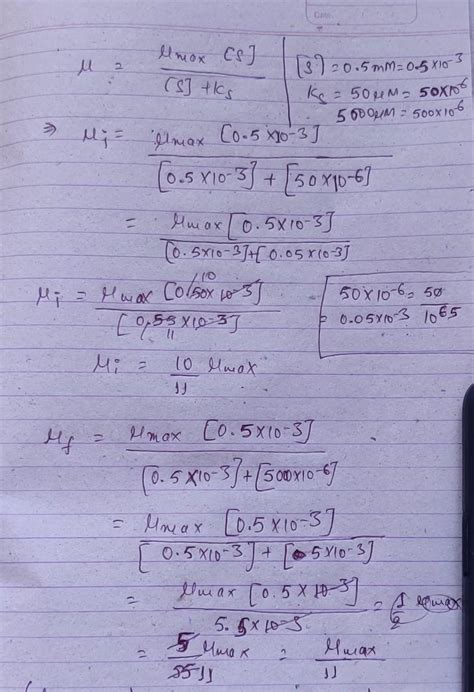 Date
μ = μmax [S] / [S] + Ks
[S] = 0.5 mM = 0.5 × 10⁻³
Ks = 50 μM = 50×10⁻⁶
5000μM = 500×10⁻⁶
⇒ μi = μmax [0.5×10-3] / [0.5×10-3] + [50×10-6]
= μmax [0.5×10-3] / [0.5×10-3]+[0.05×10-3]
μi = μmax [0.50×10-3] / [0.55×10-3]
10
11
50×10-6 = 50
= 0.05×10-3
μi = 10/11 μmax
μf = μmax [0.5×10-3] / [0.5×10-3]+[500×10-6]
= μmax [0.5×10-3] / [0.5×10-3] + [0.5×10-3]
= μmax [0.5×10-3] / 5.5×10-3 = 1/2 μmax
= 5/55 11 μmax = μmax/11